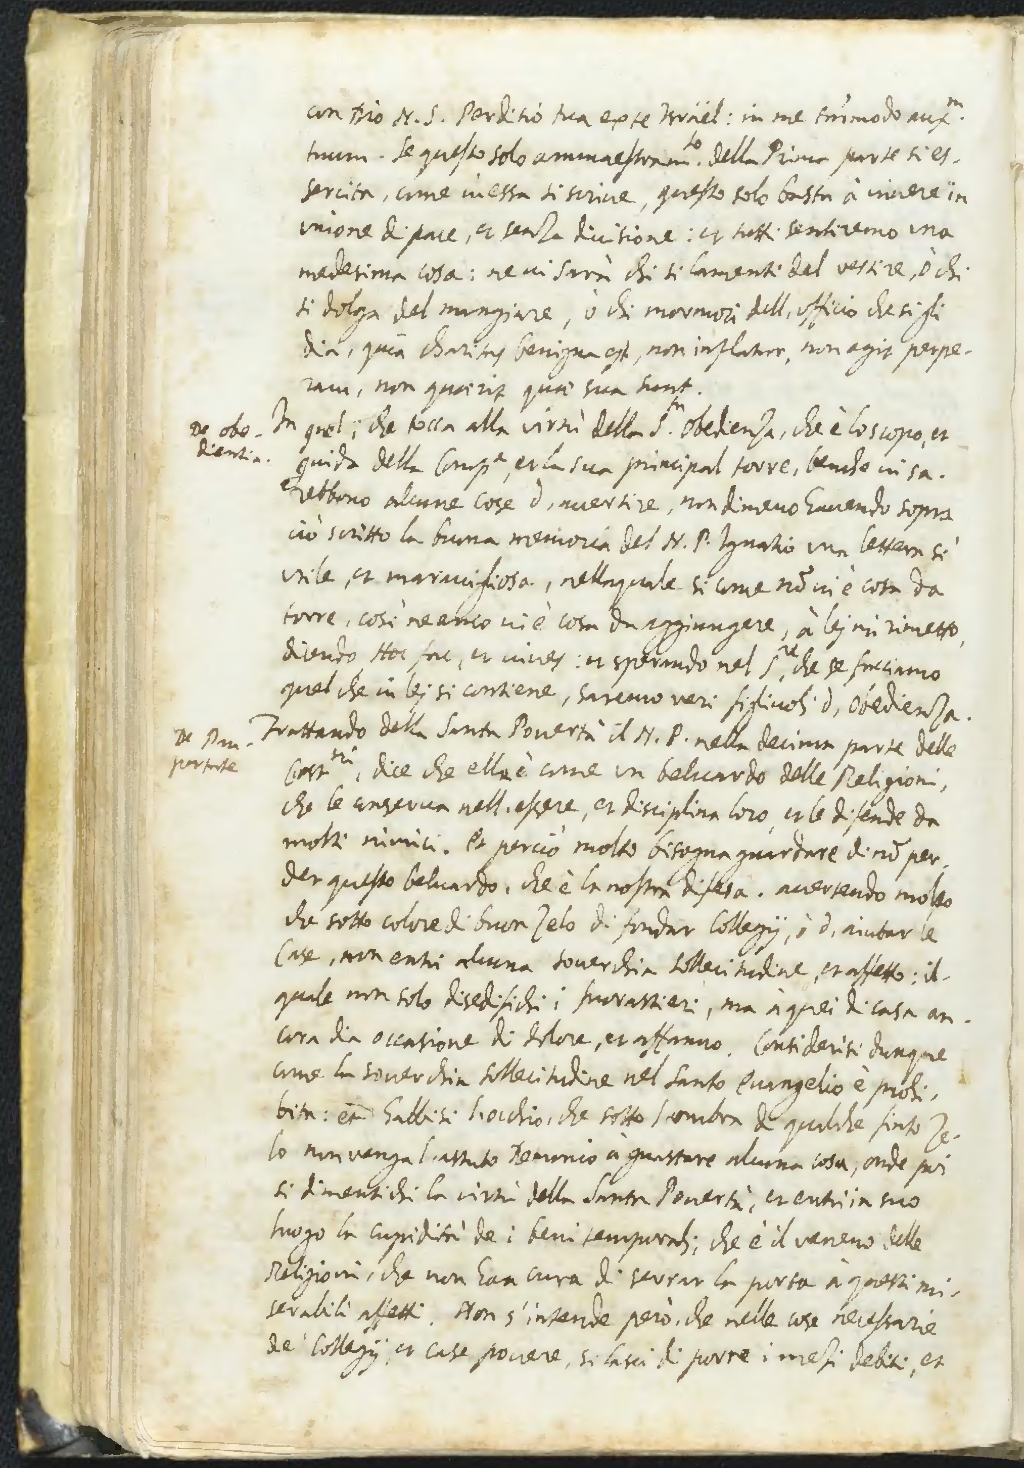 con Dio N. S. Perditio tua ex te Israel: in me tm̃modo aux.m
tuum. Se questo solo ammaestram.to della Prima parte si es-
sercita, come in essa si scrive, questo solo basta à vivere in
unione di pace, et senza divisione: et tutti sentiremo una
medesima cosa: ne vi sarà chi si lamenti del vestire, ò chi
si dolga del mangiare, ò chi mormori dell'officio che si gli
dia, quia charitas benigna est, non inflatur, non agit perpe-
ram, non quaerit quae sua sunt.
De obe-
dientia.
In quel, che tocca alla virtù della S.ta obedienza, che è lo scopo, et
guida della Comp.a, et la sua principal torre, benche vi sa-
rebbono alcune cose d'avertire, nondimeno havendo sopra
ciò scritto la buona memoria del N. P. Ignatio una lettera sì
utile, et maravigliosa, nella quale si come nõ vi è cosa da
torre, così ne anco vi è cosa da aggiungere, à lej mi rimetto,
dicendo, Hoc fac, et vives: et sperando nel S.re, che se facciamo
quel che in lej si contiene, saremo veri figliuoli d'obedienza.
De Pau-
pertate
Trattando della Santa Povertà il N. P. nella decima parte delle
Cost.ni, dice che ella è come un beluardo delle Religioni,
che le conserva nell'essere, et disciplina loro, et le difende da
molti nimici. Et perciò molto bisogna guardare di nõ per-
der questo beluardo, che è la nostra difesa. avertendo molto
che sotto colore di buon zelo di fondar Collegij, ò d'aiutar le
Case, non entri alcuna soverchia sollecitudine, et affetto: il-
quale non solo disedifichi i forastieri, ma à quei di casa an-
cora dia occasione di dolore, et affanno. Considerisi dunque
come la soverchia sollecitudine nel Santo Evangelio è prohi-
bita: et habbisi l'occhio, che sotto l'ombra di qualche finto ze-
lo non venga l'astuto Demonio à guastare alcuna cosa, onde poi
si dimentichi la virtù della Santa Povertà, et entri in suo
luogo la cupidità de i beni temporali; che è il veneno delle
Religioni, che non han cura di serrar la porta à questi mi-
serabili affetti. Non s'intende però, che nelle cose necessarie
de' Collegij, et case povere, si lasci di porre i mezi debiti, et